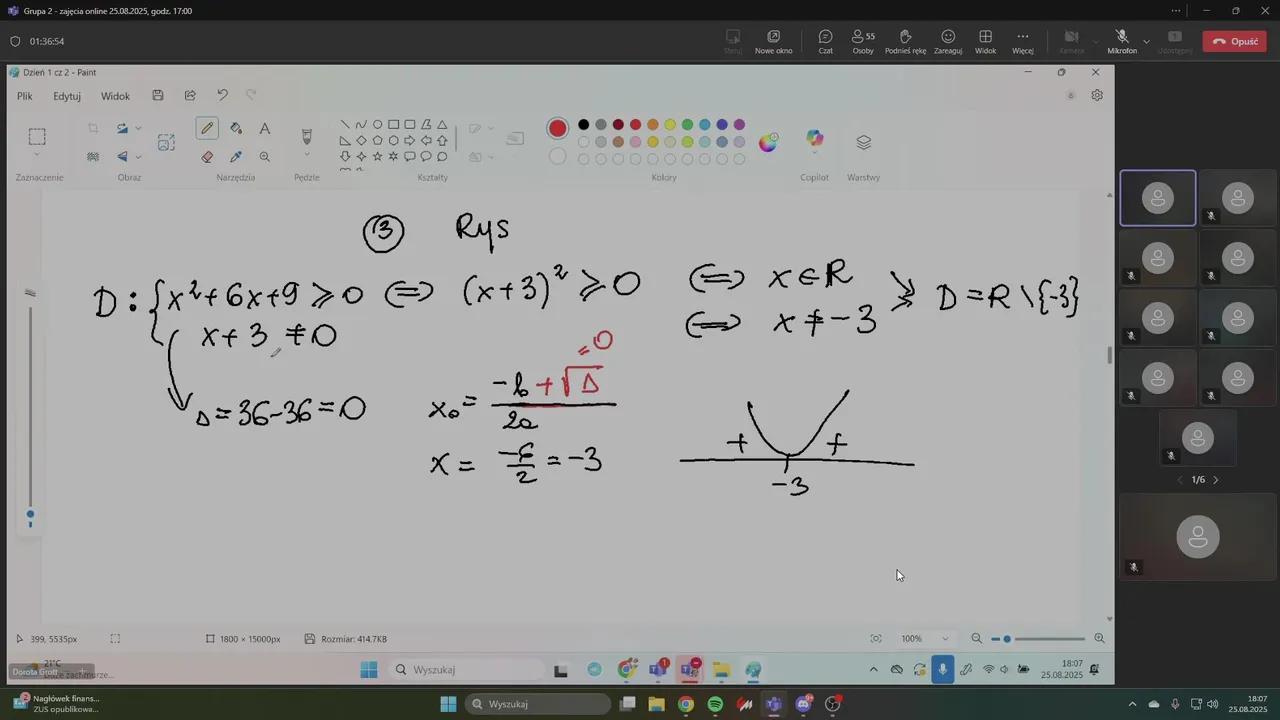 Grupa 2 - zajęcia online 25.08.2025, godz. 17:00
01:36:54
Steruj
Nowe okno
Czat
55
Osoby
Podnieś rękę
Zareaguj
Widok
Więcej
Kamera
Mikrofon
Udostępnij
Opuść
Dzień 1 cz 2 - Paint
Plik Edytuj Widok
Zaznaczenie Obraz Narzędzia Pędzle Kształty Kolory Copilot Warstwy
③ Rys
D: { x²+6x+9 ⩾ 0 ⟺ (x+3)² ⩾ 0 ⟺ x ∈ R
x+3 ≠ 0 ⟺ x ≠ -3
D = R \ {-3}
Δ = 36-36 = 0
x₀ = (-b + √Δ) / 2a
= 0
x = -6/2 = -3
+ +
-3
1/6
399, 5535px
1800 × 15000px
Rozmiar: 414.7KB
100%
21°C
Wyszukaj
18:07
25.08.2025
Nagłówek finans...
ZUS opublikowa...
Wyszukaj
18:07
25.08.2025